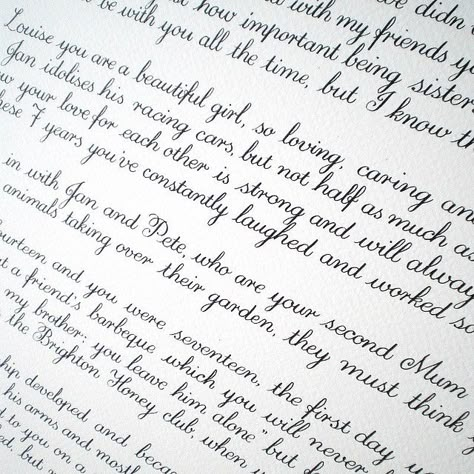 didn
st how important being sister
with my friends yo
be with you all the time, but I know th
Louise you are a beautiful girl, so loving, caring an
Jan idolises his racing cars, but not half as much as
w your love for each other is strong and will alway
hese 7 years you've constantly laughed and worked so
in with Jan and Pete, who are your second Mum
animals taking over their garden, they must think
ourteen and you were seventeen, the first day y
t a friend's barbeque which you will never
my brother; you leave him alone" but
the Brighton Honey club, when
ship developed and beca
his arms and mostl
d to you on a
ed, but